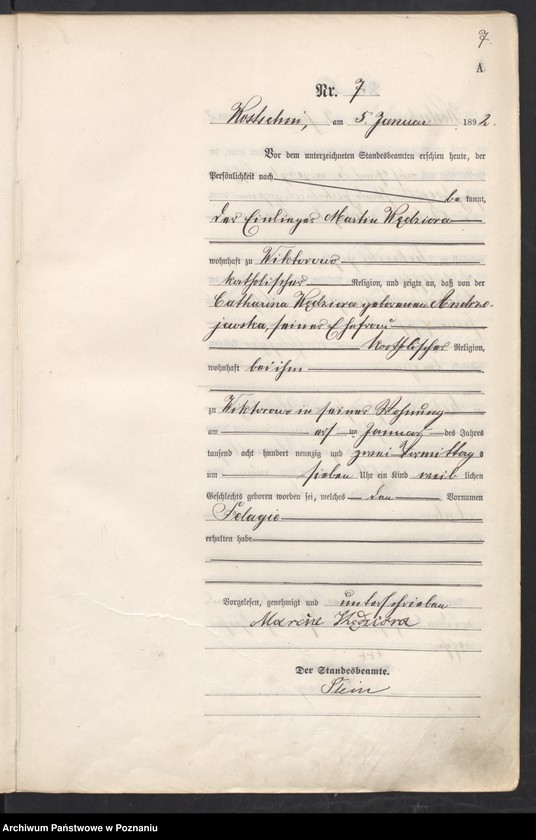 7.
A.
Nr. 7
Kostschin, am 5. Januar 1892.
Vor dem unterzeichneten Standesbeamten erschien heute, der
Persönlichkeit nach
be kannt,
der Einlieger Martin Kędziora
wohnhaft zu Wiktorowo
katholischer Religion, und zeigte an, daß von der
Catharina Kędziora geborenen Andrze-
jewska, seiner Ehefrau
katholischer Religion,
wohnhaft bei ihm
zu Wiktorowo in seiner Wohnung
am ersten Januar des Jahres
tausend acht hundert neunzig und zwei Vormittags
um sieben Uhr ein Kind weib lichen
Geschlechts geboren worden sei, welches den Vornamen
Pelagie
erhalten habe
Vorgelesen, genehmigt und unterschrieben
Marcin Kędziora
Der Standesbeamte.
Stein
Archiwum Państwowe w Poznaniu